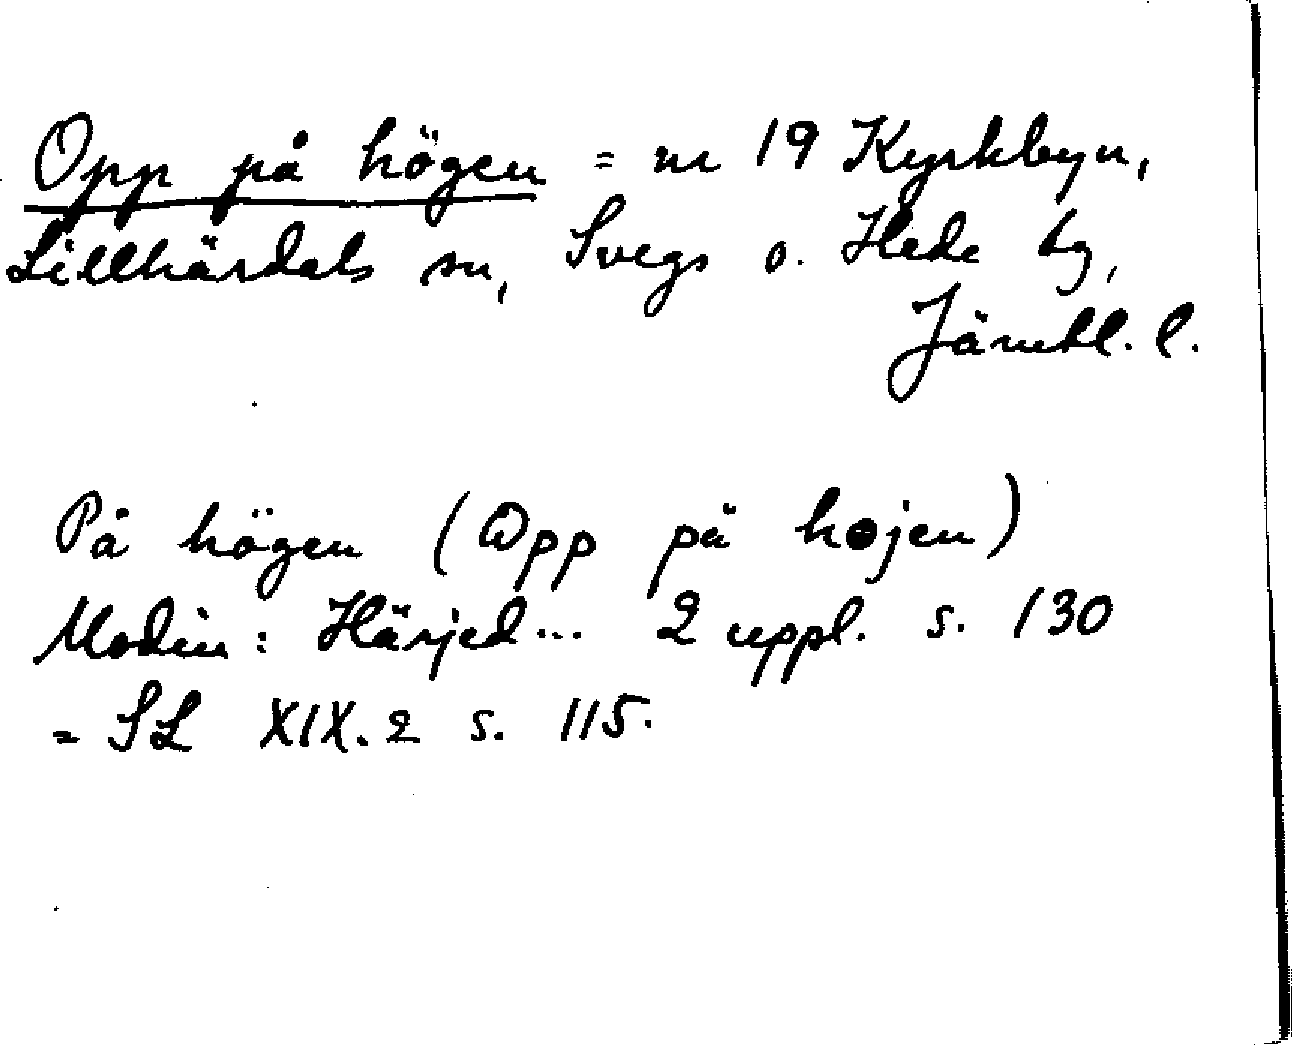 Opp på högen = nr 19 Kyrkbyn,
Lillhärdals sn, Svegs o. Hede tg,
Jämtl. l.
På högen (Opp på hojen)
Modin: Härjed... 2 uppl. s. 130
= SL XIX.2 s. 115.